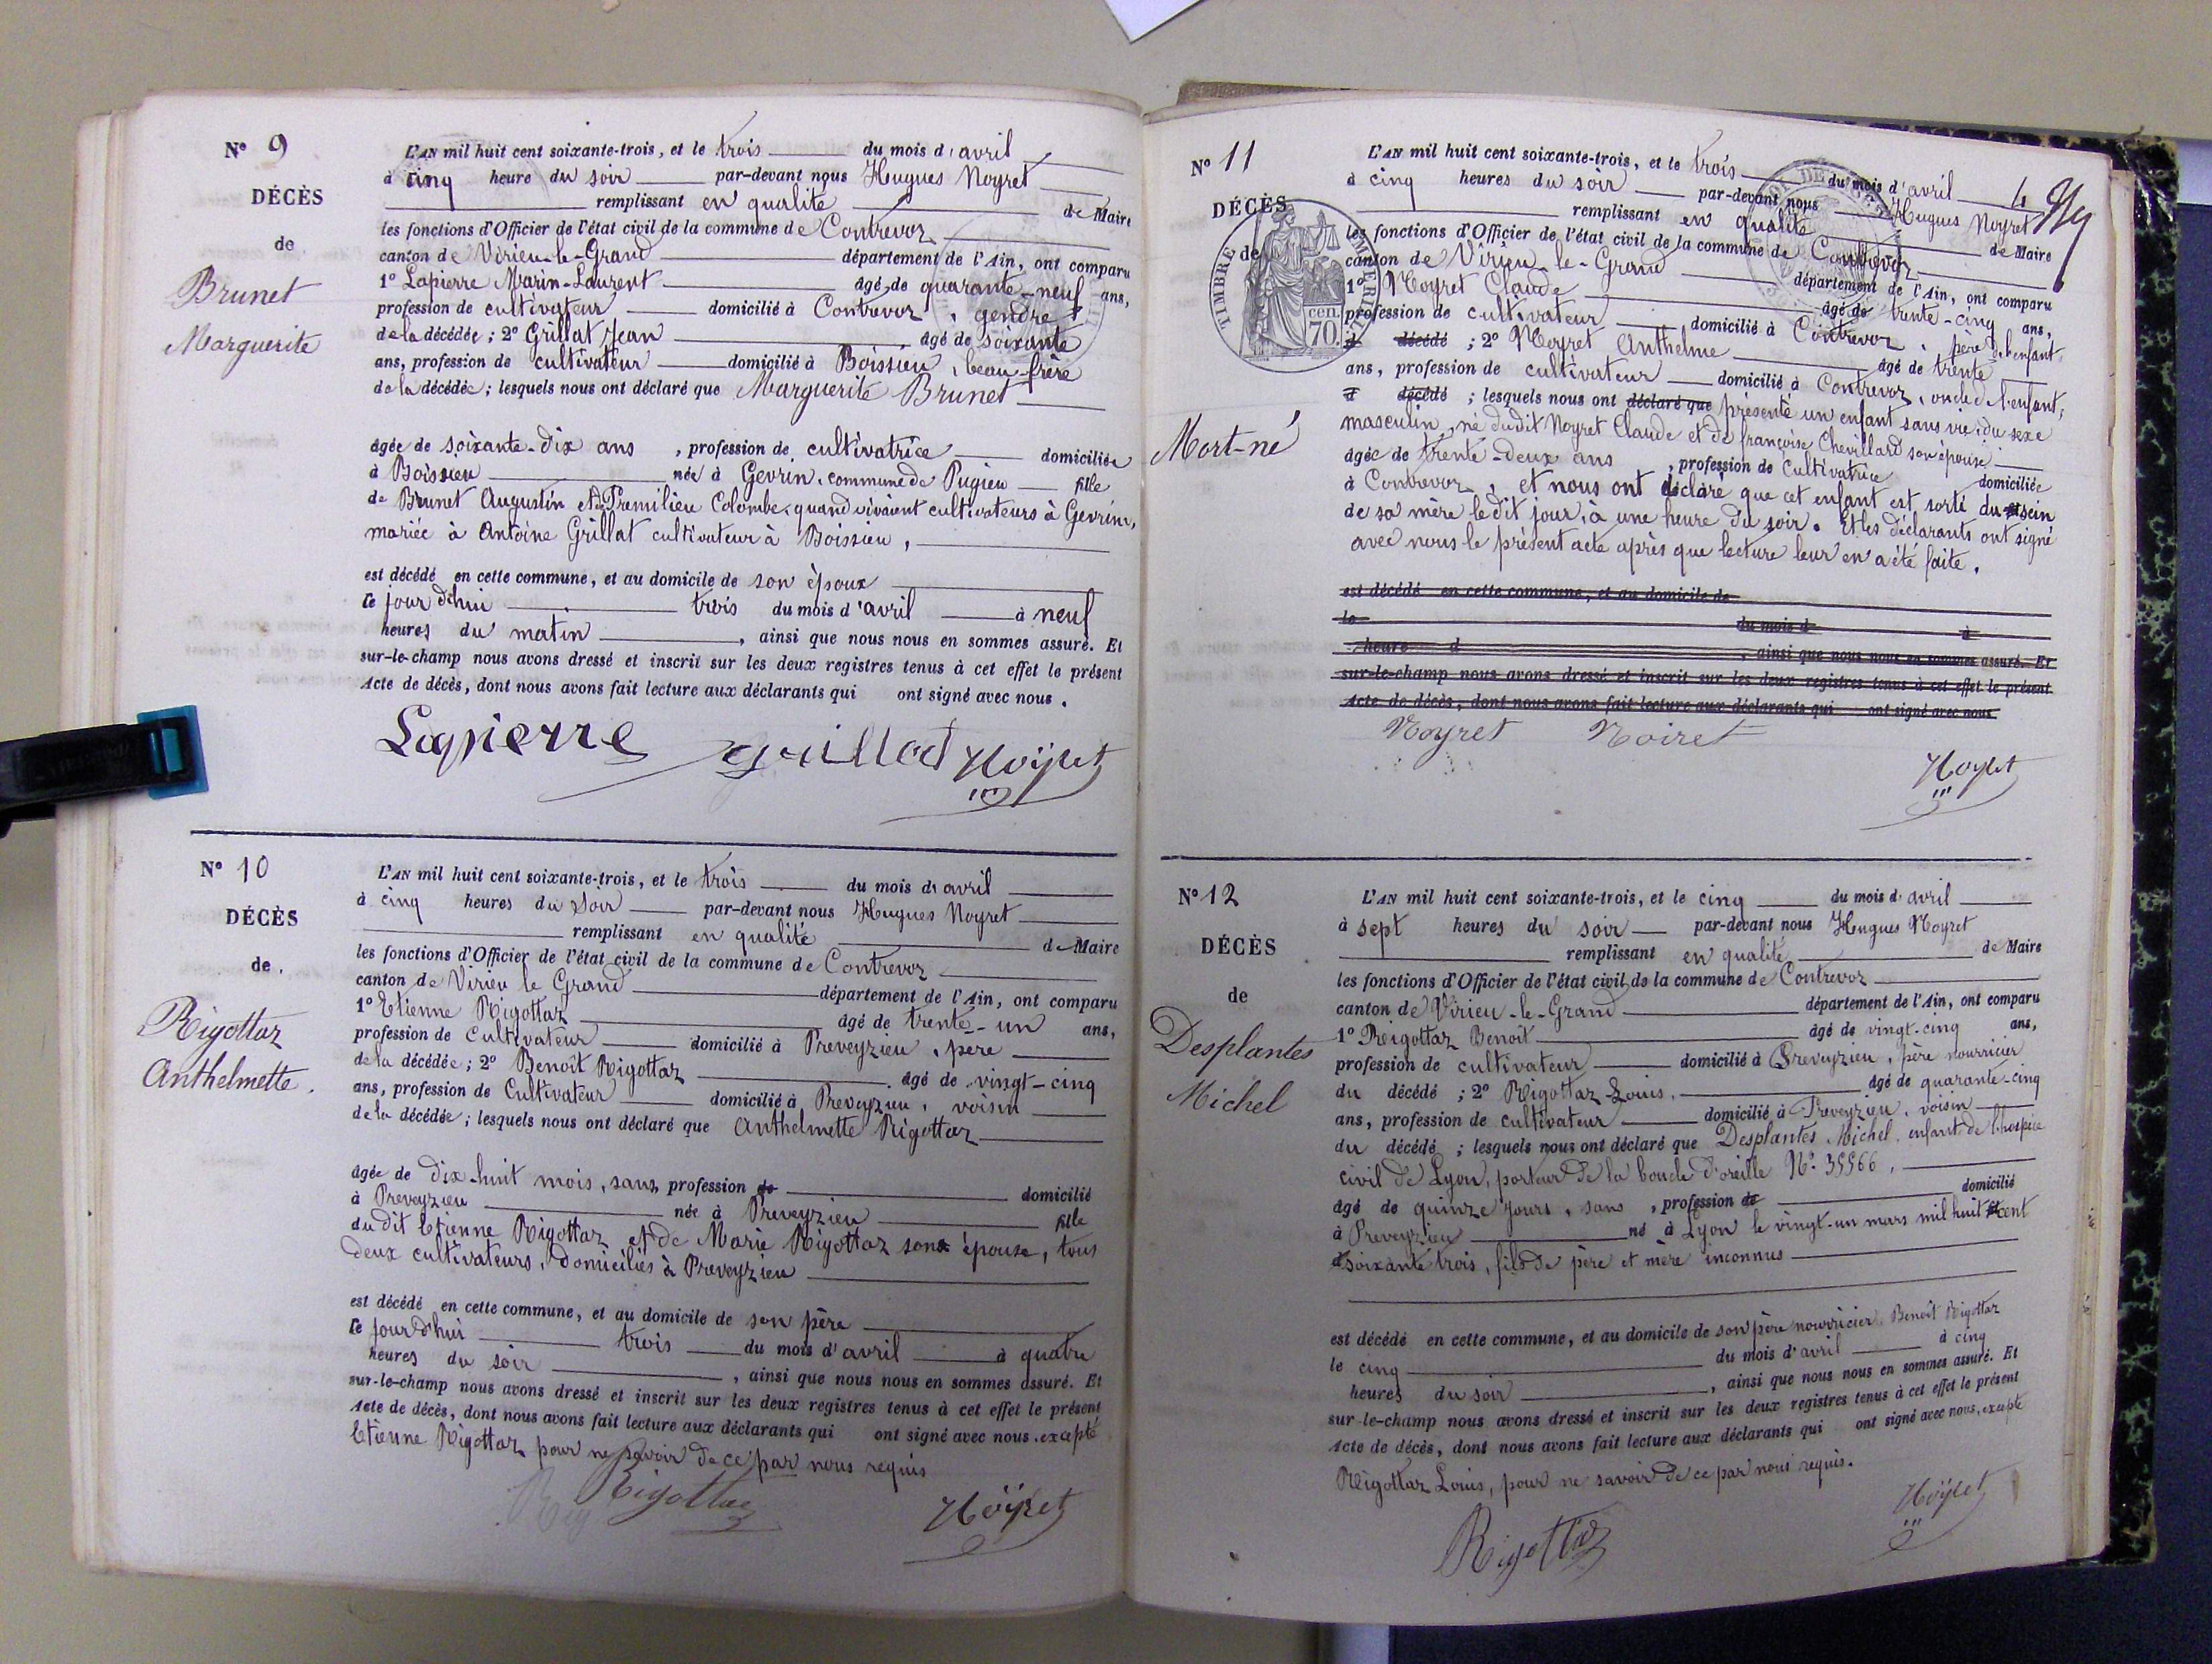 N° 9
DÉCÈS
de
Brunet
Marguerite
L'AN mil huit cent soixante-trois, et le trois du mois d'avril
à cinq heure du soir par-devant nous Hugues Noyret
remplissant en qualité de Maire
les fonctions d'Officier de l'état civil de la commune de Contrevoz
canton de Virieu-le-Grand département de l'Ain, ont comparu
1° Lapierre Marin-Laurent âgé de quarante-neuf ans,
profession de cultivateur domicilié à Contrevoz, gendre
de la décédée; 2° Grillat Jean âgé de soixante
ans, profession de cultivateur domicilié à Boissieu, beau-frère
de la décédée; lesquels nous ont déclaré que Marguerite Brunet
âgée de soixante-dix ans, profession de cultivatrice domiciliée
à Boissieu née à Gevrin, commune de Pugieu fille
de Brunet Augustin et de Premilieu Colombe, quand vivaient cultivateurs à Gevrin,
mariée à Antoine Grillat cultivateur à Boissieu,
est décédé en cette commune, et au domicile de son époux
le jour d'hui trois du mois d'avril à neuf
heures du matin, ainsi que nous nous en sommes assuré. Et
sur-le-champ nous avons dressé et inscrit sur les deux registres tenus à cet effet le présent
Acte de décès, dont nous avons fait lecture aux déclarants qui ont signé avec nous.
Lapierre Grillat Noÿret
N° 10
DÉCÈS
de
Rigottaz
Anthelmette.
L'AN mil huit cent soixante-trois, et le trois du mois d'avril
à cinq heures du soir par-devant nous Hugues Noyret
remplissant en qualité de Maire
les fonctions d'Officier de l'état civil de la commune de Contrevoz
canton de Virieu le Grand département de l'Ain, ont comparu
1° Etienne Rigottaz âgé de trente-un ans,
profession de cultivateur domicilié à Preveyzieu, père
de la décédée; 2° Benoît Rigottaz âgé de vingt-cinq
ans, profession de Cultivateur domicilié à Preveyzieu, voisin
de la décédée; lesquels nous ont déclaré que Anthelmette Rigottaz
âgée de dix-huit mois, sans profession de domicilié
à Preveyzieu née à Preveyzieu fille
du dit Etienne Rigottaz et de Marie Rigottaz son épouse, tous
deux cultivateurs, domiciliés à Preveyzieu
est décédé en cette commune, et au domicile de son père
le jourd'hui trois du mois d'avril à quatre
heures du soir, ainsi que nous nous en sommes assuré. Et
sur-le-champ nous avons dressé et inscrit sur les deux registres tenus à cet effet le présent
Acte de décès, dont nous avons fait lecture aux déclarants qui ont signé avec nous. excepté
Etienne Rigottaz pour ne savoir de ce par nous requis
Rig Rigottaz Noÿret
N° 11
DÉCÈS
de
TIMBRE IMPERIAL
70 cen.
Mort-né
L'AN mil huit cent soixante-trois, et le trois du mois d'avril 4
à cinq heures du soir par-devant nous Hugues Noyret
remplissant en qualité de Maire
les fonctions d'Officier de l'état civil de la commune de Contrevoz
canton de Virieu-le-Grand département de l'Ain, ont comparu
1° Noyret Claude âgé de trente-cinq ans,
profession de cultivateur domicilié à Contrevoz, père de l'enfant
d décédé; 2° Noyret Anthelme âgé de trente
ans, profession de cultivateur domicilié à Contrevoz, oncle de l'enfant,
d décédé; lesquels nous ont déclaré que présenté un enfant sans vie, du sexe
masculin, né du dit Noyret Claude et de françoise Chevillard son épouse
âgée de trente-deux ans, profession de cultivatrice domiciliée
à Contrevoz, et nous ont déclaré que cet enfant est sorti du sein
de sa mère le dit jour, à une heure du soir. Et les déclarants ont signé
avec nous le présent acte après que lecture leur en a été faite.
est décédé en cette commune, et au domicile de
le du mois d à
heure d, ainsi que nous nous en sommes assuré. Et
sur-le-champ nous avons dressé et inscrit sur les deux registres tenus à cet effet le présent
Acte de décès, dont nous avons fait lecture aux déclarants qui ont signé avec nous.
Noyret Noiret
Noyret
N° 12
DÉCÈS
de
Desplantes
Michel
L'AN mil huit cent soixante-trois, et le cinq du mois d'avril
à sept heures du soir par-devant nous Hugues Noyret
remplissant en qualité de Maire
les fonctions d'Officier de l'état civil de la commune de Contrevoz
canton de Virieu-le-Grand département de l'Ain, ont comparu
1° Rigottaz Benoît âgé de vingt-cinq ans,
profession de cultivateur domicilié à Preveyzieu, père nourricier
du décédé; 2° Rigottaz Louis, âgé de quarante-cinq
ans, profession de cultivateur domicilié à Preveyzieu, voisin
du décédé; lesquels nous ont déclaré que Desplantes Michel, enfant de l'hospice
civil de Lyon, porteur de la boucle d'oreille N°. 35566,
âgé de quinze jours, sans, profession de domicilié
à Preveyzieu né à Lyon le vingt-un mars mil huit cent
soixante trois, fils de père et mère inconnus
est décédé en cette commune, et au domicile de son père nourricier Benoît Rigottaz
le cinq du mois d'avril à cinq
heures du soir, ainsi que nous nous en sommes assuré. Et
sur-le-champ nous avons dressé et inscrit sur les deux registres tenus à cet effet le présent
Acte de décès, dont nous avons fait lecture aux déclarants qui ont signé avec nous, excepté
Rigottaz Louis, pour ne savoir de ce par nous requis.
Rigottaz Noÿret